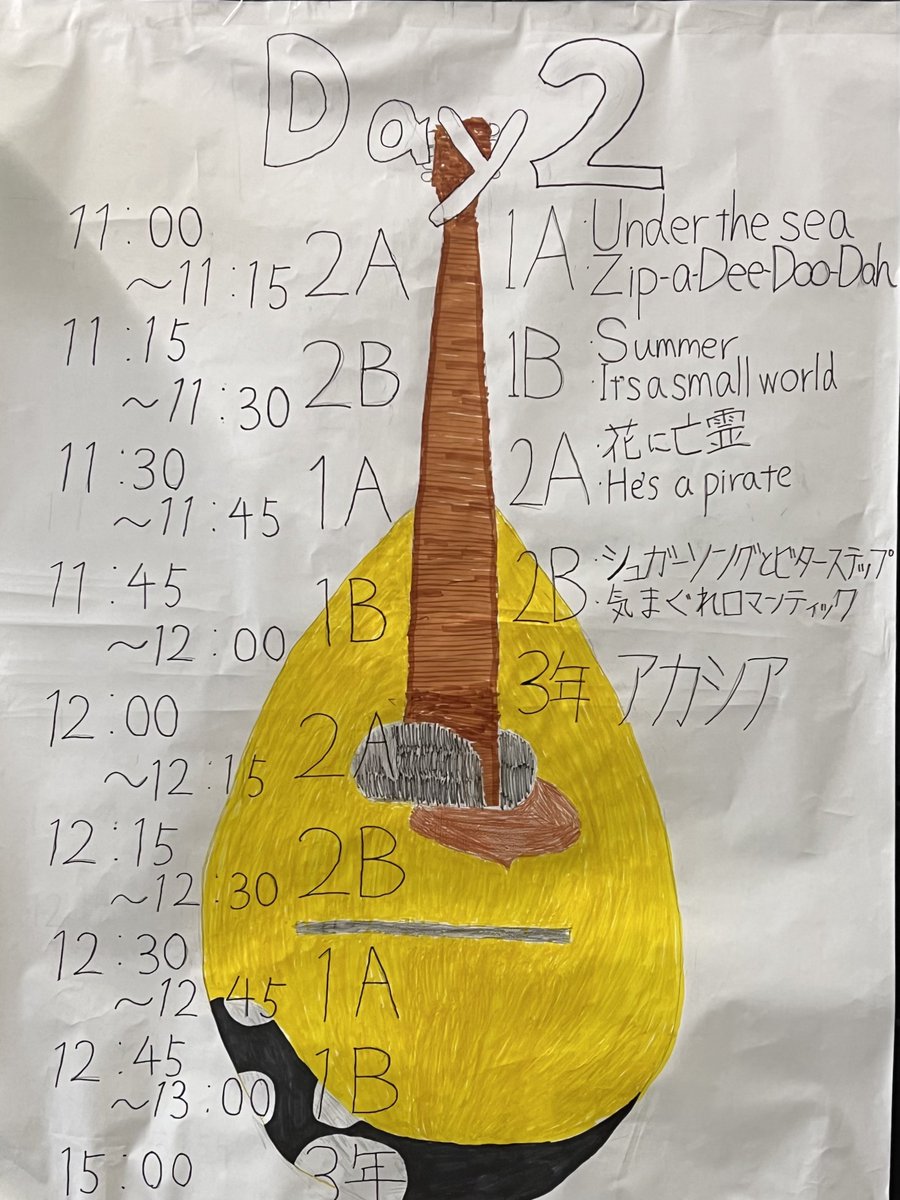 Day 2
11:00
~11:15 2A
11:15
~11:30 2B
11:30
~11:45 1A
11:45
~12:00 1B
12:00
~12:15 2A
12:15
~12:30 2B
12:30
~12:45 1A
12:45
~13:00 1B
15:00 3年
1A ・Under the sea
・Zip-a-Dee-Doo-Dah
1B ・Summer
・It's a small world
2A ・花に亡霊
・He's a pirate
2B ・シュガーソングとビターステップ
・気まぐれロマンティック
3年 アカシア